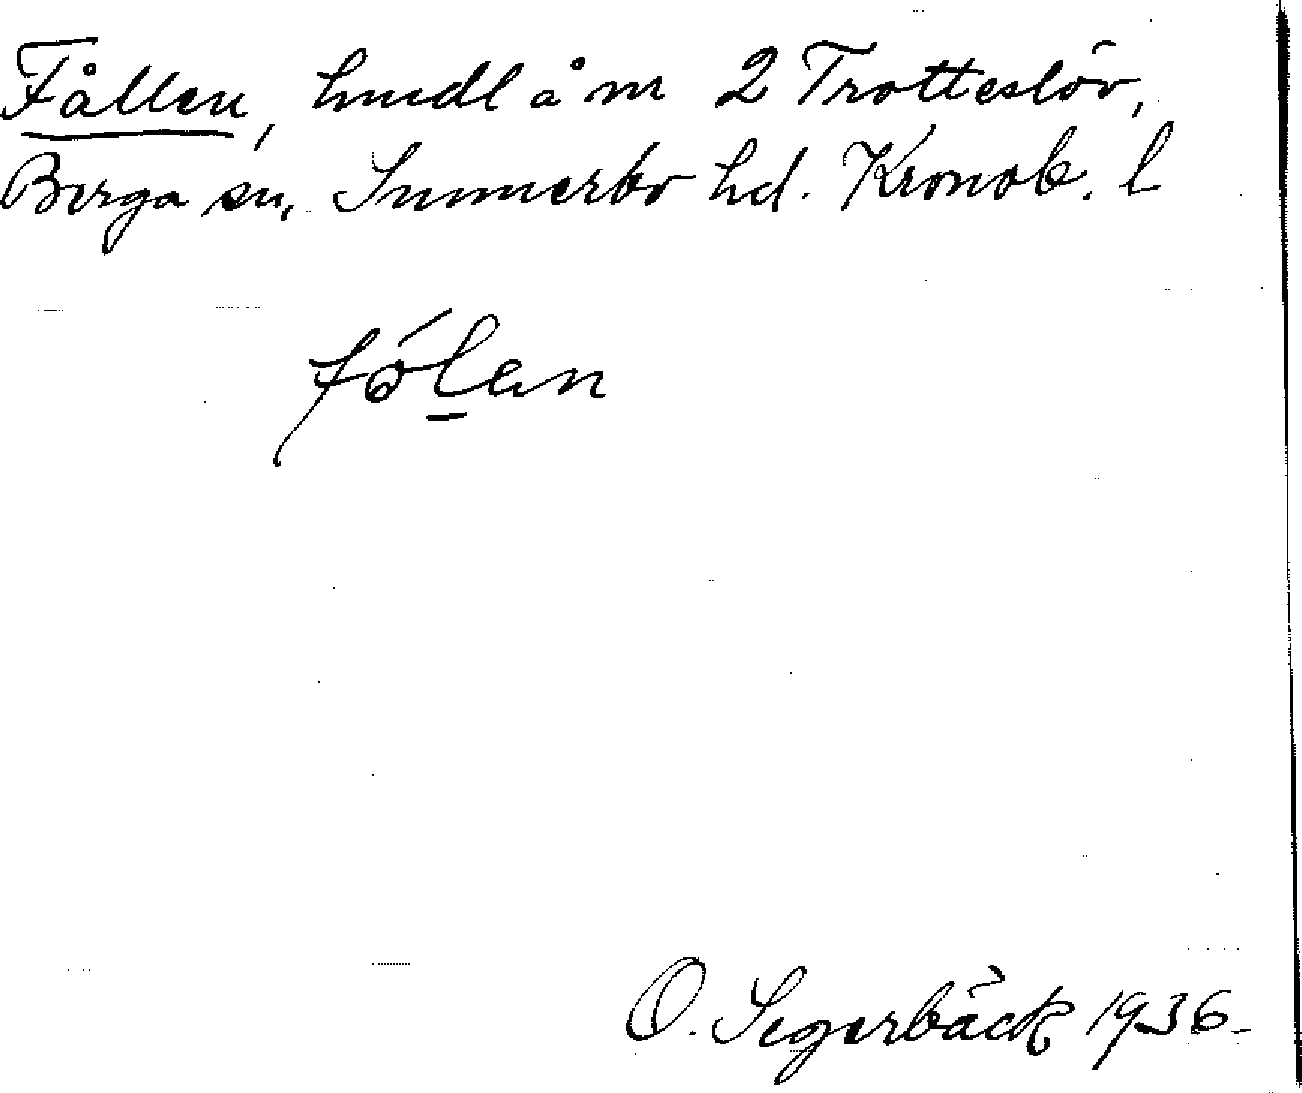 Fållen, hmdl å m 2 Trotteslöv,
Berga sn, Sunnerbo hd. Kronob. l
fólan
O. Segerbäck 1936.